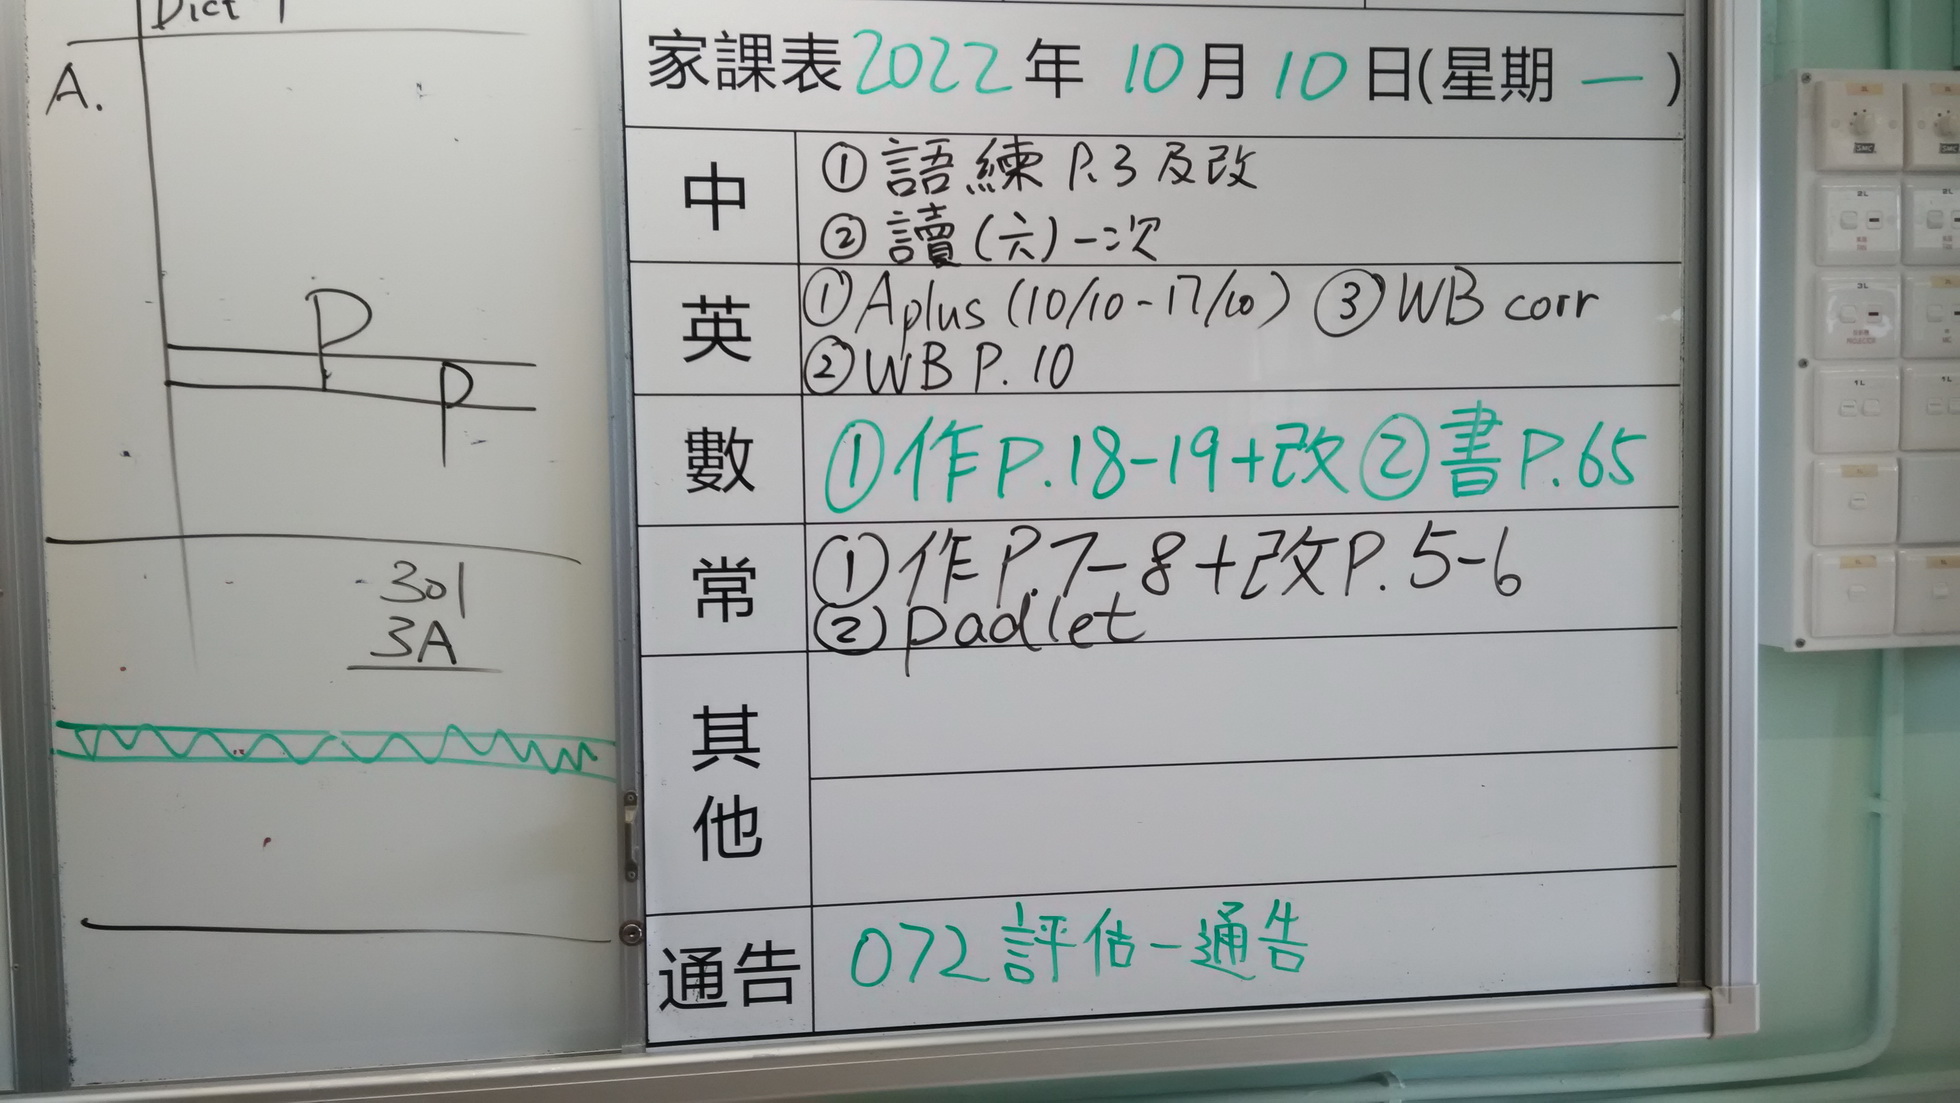 Dict 1
A.
P
P
301
3A
家課表 2022年 10月 10日(星期 一 )
中
① 語練 P.3 及改
② 讀(六)一次
英
① Aplus (10/10-17/10) ③ WB corr
② WB P.10
數
① 作 P.18-19+改 ② 書 P.65
常
① 作 P.7-8+改 P.5-6
② padlet
其他
通告
072 評估一通告